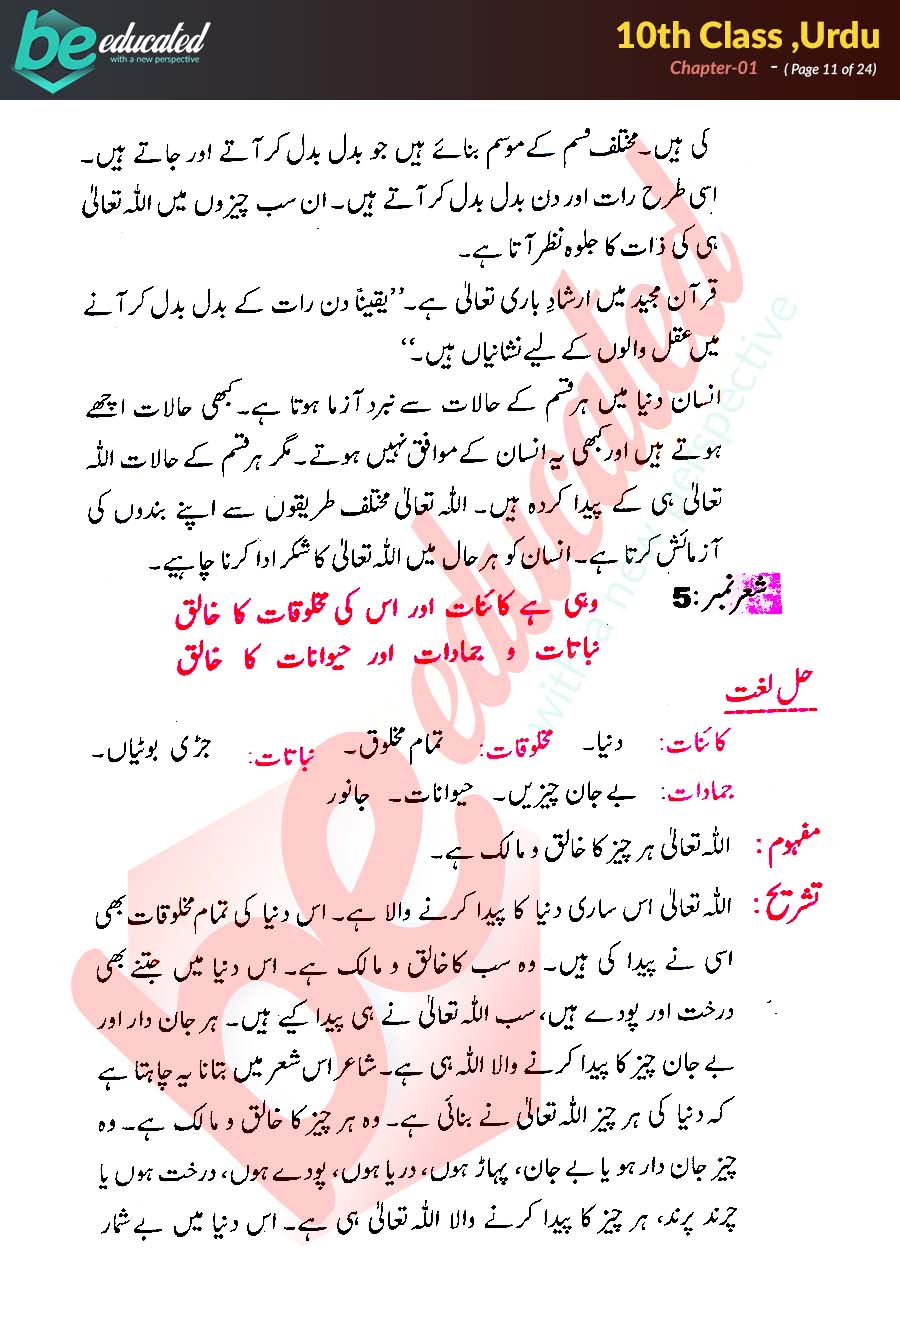 be educated
with a new perspective
10th Class ,Urdu
Chapter-01 - ( Page 11 of 24)
کی ہیں۔ مختلف قسم کے موسم بنائے ہیں جو بدل بدل کر آتے اور جاتے ہیں۔
اسی طرح رات اور دن بدل بدل کر آتے ہیں۔ ان سب چیزوں میں اللہ تعالیٰ
ہی کی ذات کا جلوہ نظر آتا ہے۔
قرآن مجید میں ارشادِ باری تعالیٰ ہے۔ ’’یقیناً دن رات کے بدل بدل کر آنے
میں عقل والوں کے لیے نشانیاں ہیں۔‘‘
انسان دنیا میں ہر قسم کے حالات سے نبرد آزما ہوتا ہے۔ کبھی حالات اچھے
ہوتے ہیں اور کبھی یہ انسان کے موافق نہیں ہوتے۔ مگر ہر قسم کے حالات اللہ
تعالیٰ ہی کے پیدا کردہ ہیں۔ اللہ تعالیٰ مختلف طریقوں سے اپنے بندوں کی
آزمائش کرتا ہے۔ انسان کو ہر حال میں اللہ تعالیٰ کا شکر ادا کرنا چاہیے۔
شعر نمبر :5 وہی ہے کائنات اور اس کی مخلوقات کا خالق
نباتات و جمادات اور حیوانات کا خالق
حل لغت
کائنات: دنیا۔ مخلوقات: تمام مخلوق۔ نباتات: جڑی بوٹیاں۔
جمادات: بے جان چیزیں۔ حیوانات۔ جانور
مفہوم: اللہ تعالیٰ ہر چیز کا خالق و مالک ہے۔
تشریح: اللہ تعالیٰ اس ساری دنیا کا پیدا کرنے والا ہے۔ اس دنیا کی تمام مخلوقات بھی
اسی نے پیدا کی ہیں۔ وہ سب کا خالق و مالک ہے۔ اس دنیا میں جتنے بھی
درخت اور پودے ہیں، سب اللہ تعالیٰ نے ہی پیدا کیے ہیں۔ ہر جان دار اور
بے جان چیز کا پیدا کرنے والا اللہ ہی ہے۔ شاعر اس شعر میں بتانا یہ چاہتا ہے
کہ دنیا کی ہر چیز اللہ تعالیٰ نے بنائی ہے۔ وہ ہر چیز کا خالق و مالک ہے۔ وہ
چیز جان دار ہو یا بے جان، پہاڑ ہوں، دریا ہوں، پودے ہوں، درخت ہوں یا
چرند پرند، ہر چیز کا پیدا کرنے والا اللہ تعالیٰ ہی ہے۔ اس دنیا میں بے شمار
be educated
with a new perspective